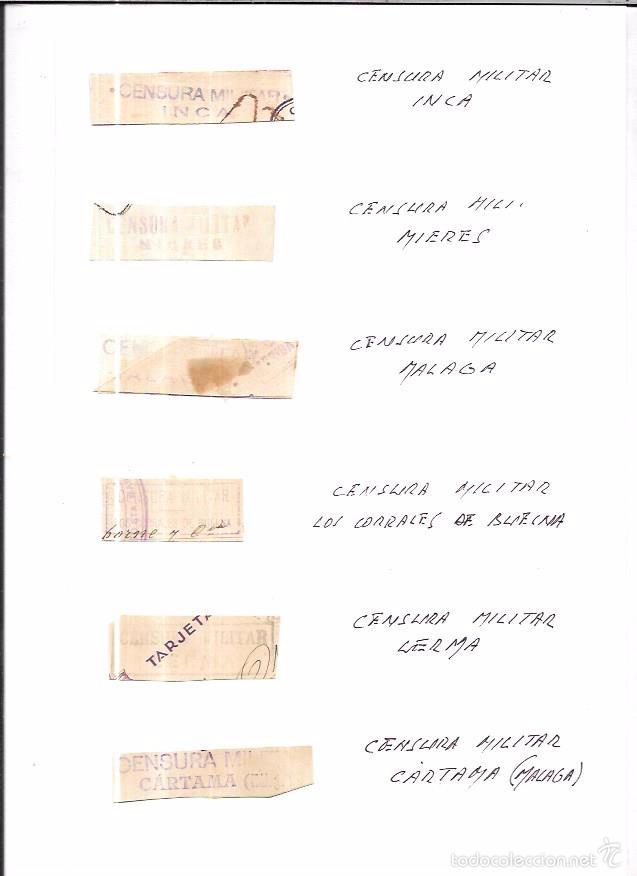 ·CENSURA MILITAR·
INCA
CENSURA MILITAR
INCA
CENSURA MILITAR
MIERES
CENSURA MILI.
MIERES
CEN
CENSURA MILITAR
MALAGA
CENSURA MILITAR
borne y
CENSURA MILITAR
LOS CORRALES DE BUELNA
TARJETA
CENSURA MILITAR
LERMA
CENSURA MILITAR
LERMA
CENSURA MI
CÁRTAMA
CENSURA MILITAR
CÁRTAMA (MALAGA)
todocoleccion.net